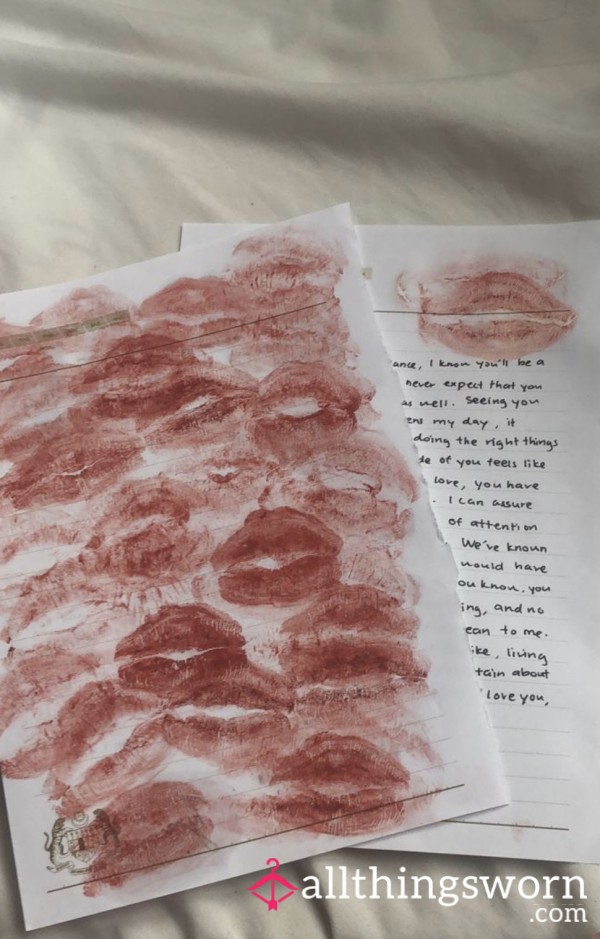 ance, I know you'll be a
never expect that you
as well. Seeing you
ens my day, it
doing the right things
de of you feels like
love, you have
. I can assure
of attention
We've known
would have
ou know, you
ing, and no
ean to me.
ike, living
tain about
I love you,
allthingsworn
.com